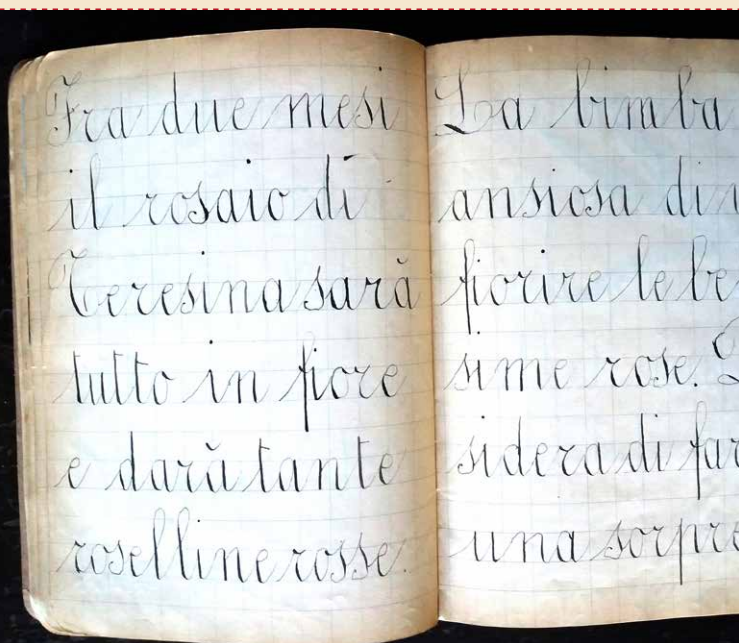 Fra due mesi
il rosaio di
Teresina sară
tutto in fiore
e dară tante
roselline rosse.
La bimba
ansiosa di
fiorire le be
sime rose.
sidera di far
una sorpre